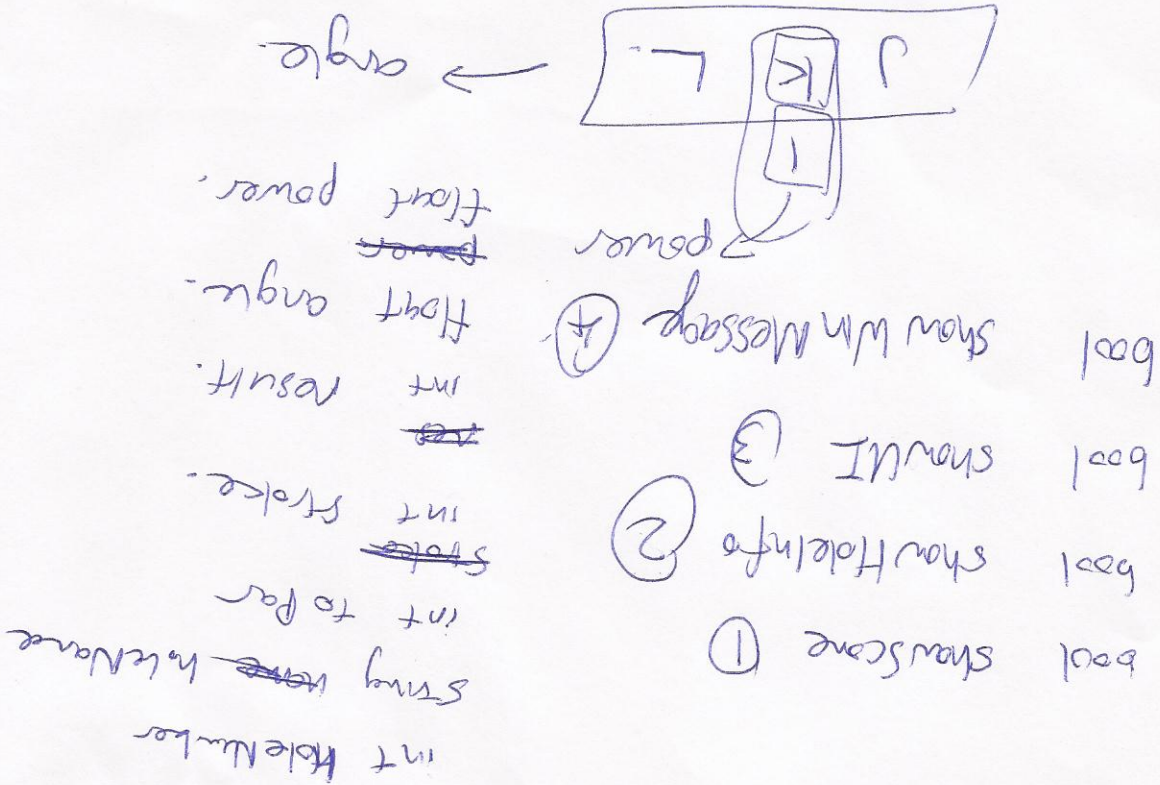 int HoleNumber
string ~~name~~ holeName
int toPar
~~stroke~~
int stroke.
~~res~~
int result.
float angle.
~~power~~
float power.
bool showScore ①
bool showHoleInfo ②
bool showUI ③
bool showWinMessage ④
power
I
J K L → angle.